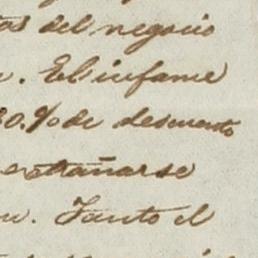 del negocio
. El infame
0.% de descuento
extrañarse
. Tanto el